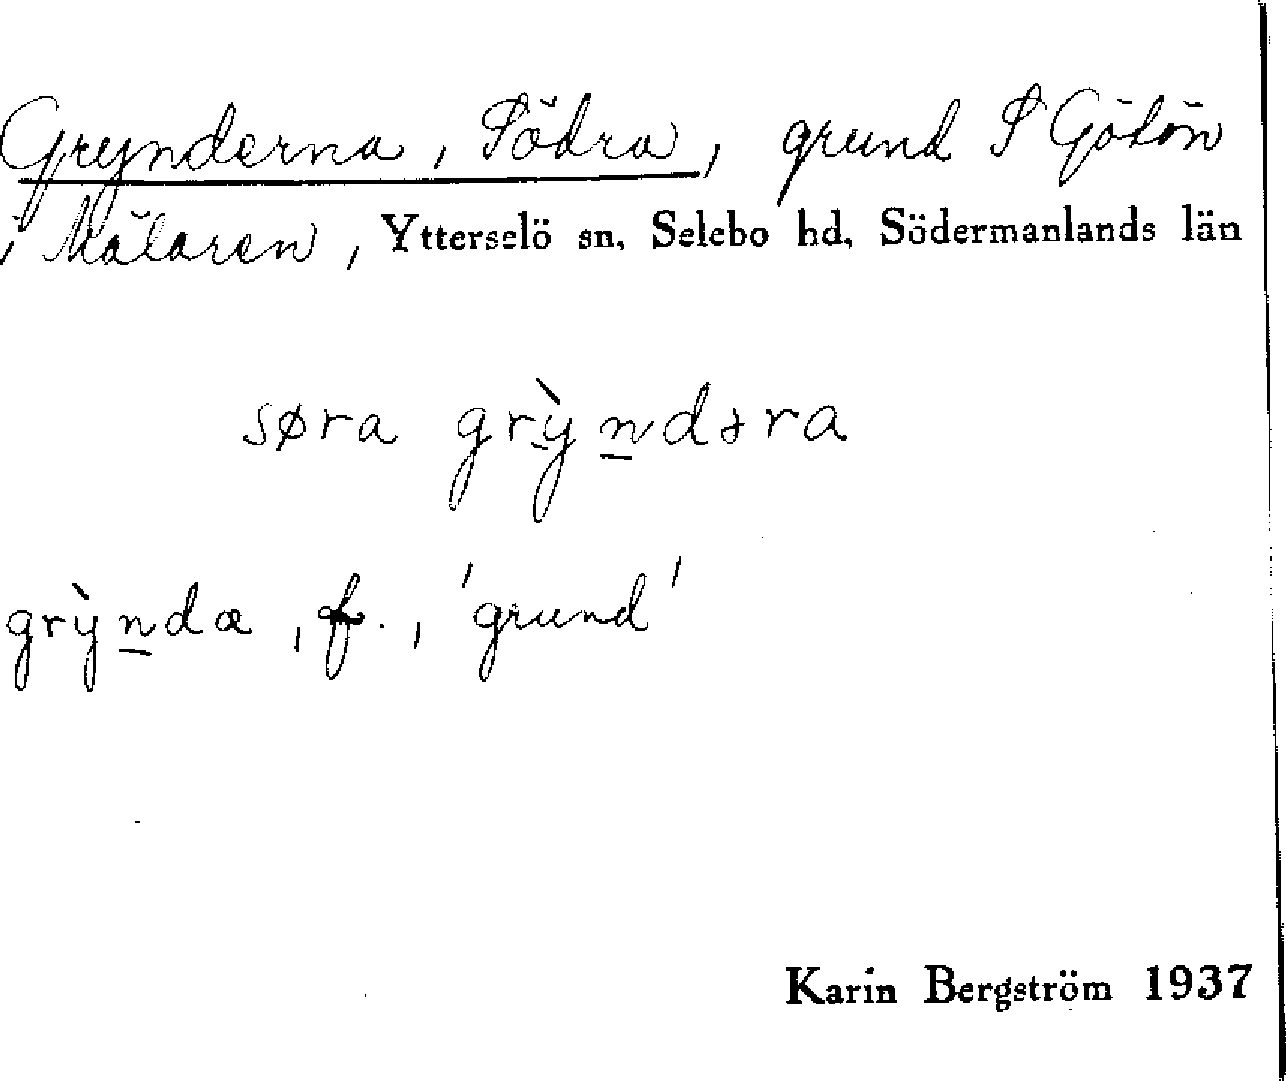 Grynderna, Södra, grund S Götön
i Mälaren, Ytterselö sn, Selebo hd, Södermanlands län
søra grỳṉdəra
grỳṉda, f., 'grund'
Karin Bergström 1937